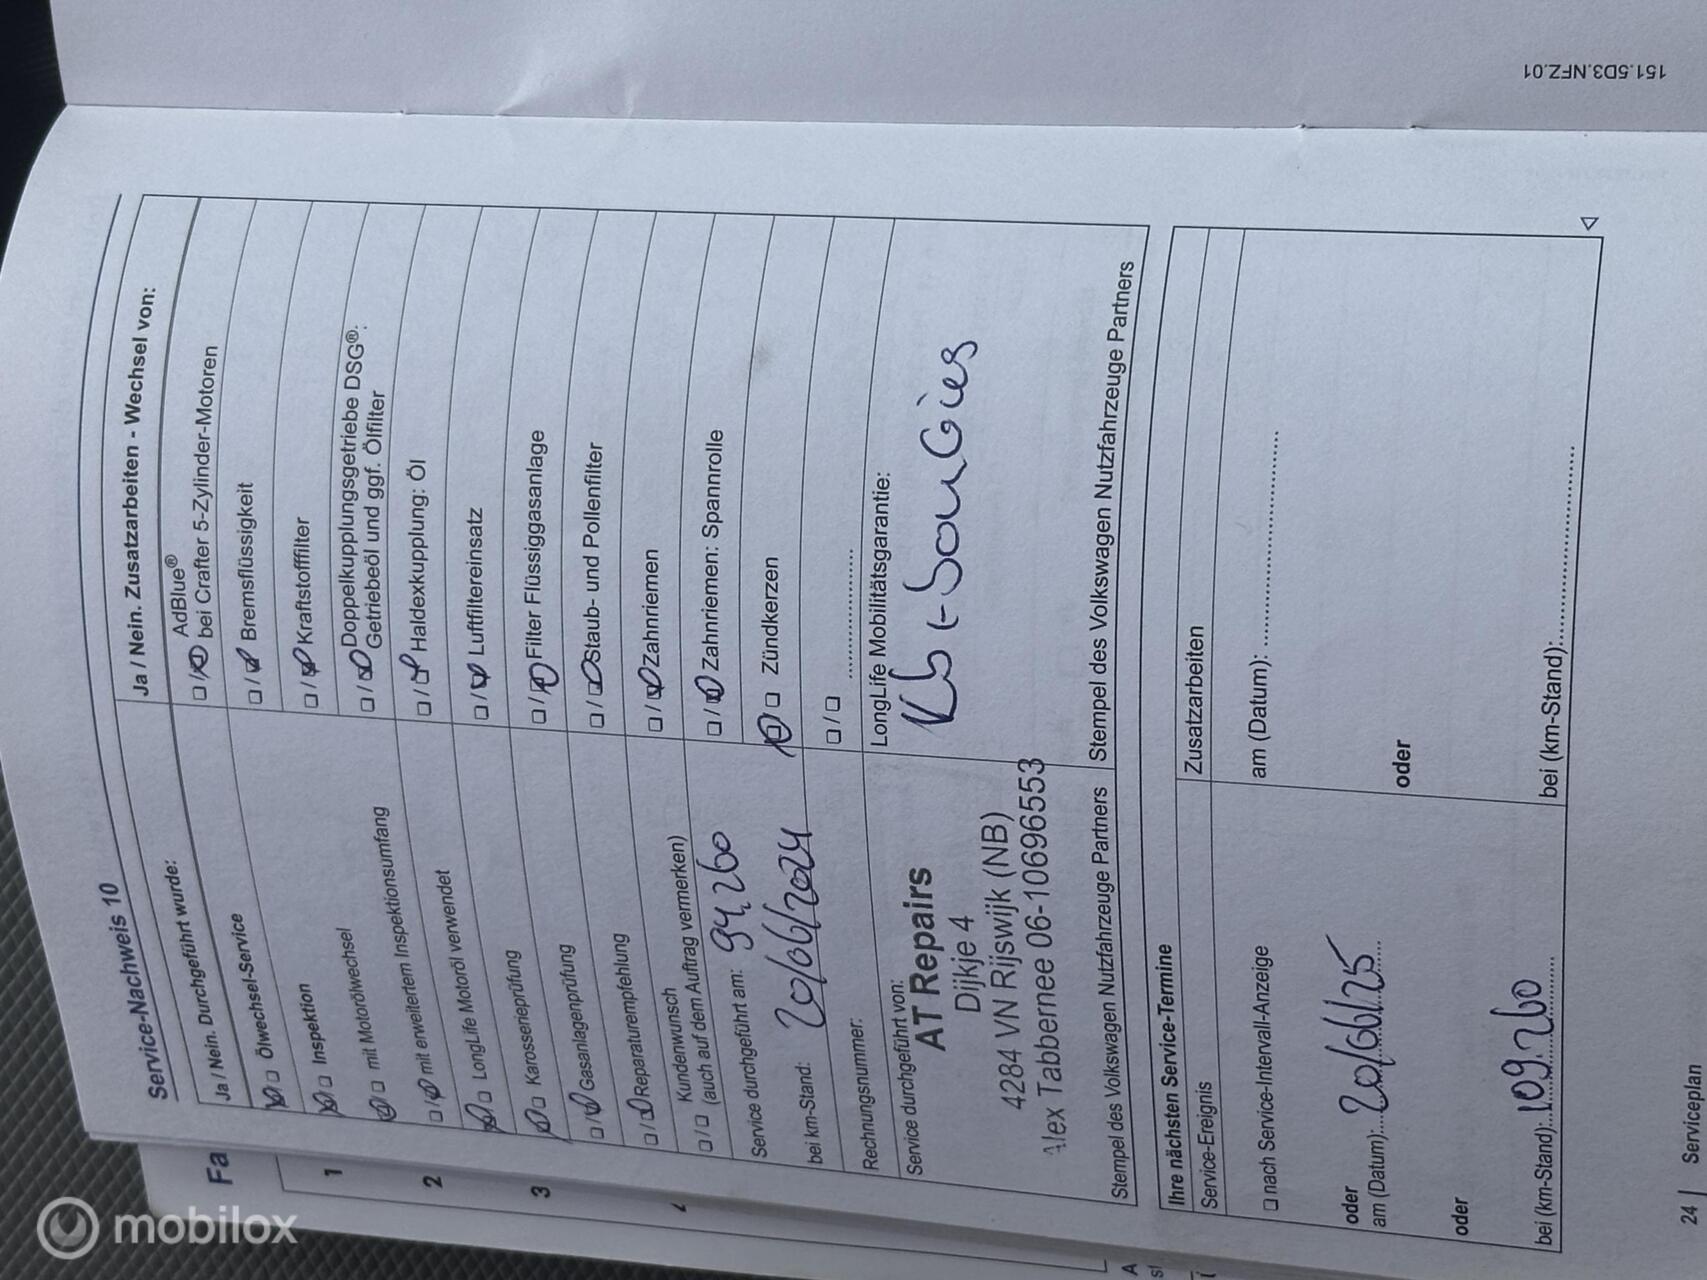 Service-Nachweis 10
Ja / Nein. Durchgeführt wurde:
Ölwechsel-Service
Inspektion
mit Motorölwechsel
mit erweitertem Inspektionsumfang
LongLife Motoröl verwendet
Karosserieprüfung
Gasanlagenprüfung
Reparaturempfehlung
Kundenwunsch
(auch auf dem Auftrag vermerken)
Service durchgeführt am: 94,260
bei km-Stand: 20/06/2024
Rechnungsnummer:
Service durchgeführt von:
AT Repairs
Dijkje 4
4284 VN Rijswijk (NB)
Alex Tabbernee 06-10696553
Stempel des Volkswagen Nutzfahrzeuge Partners
Ja / Nein. Zusatzarbeiten - Wechsel von:
AdBlue®
bei Crafter 5-Zylinder-Motoren
Bremsflüssigkeit
Kraftstofffilter
Doppelkupplungsgetriebe DSG®:
Getriebeöl und ggf. Ölfilter
Haldexkupplung: Öl
Luftfiltereinsatz
Filter Flüssiggasanlage
Staub- und Pollenfilter
Zahnriemen
Zahnriemen: Spannrolle
Zündkerzen
LongLife Mobilitätsgarantie:
Stempel des Volkswagen Nutzfahrzeuge Partners
Ihre nächsten Service-Termine
Service-Ereignis
nach Service-Intervall-Anzeige
oder
am (Datum): 20/06/25
oder
bei (km-Stand): 109.260
Zusatzarbeiten
am (Datum):
oder
bei (km-Stand):
24 | Serviceplan
151.5D3.NFZ.01
Fa
1
2
3
mobilox